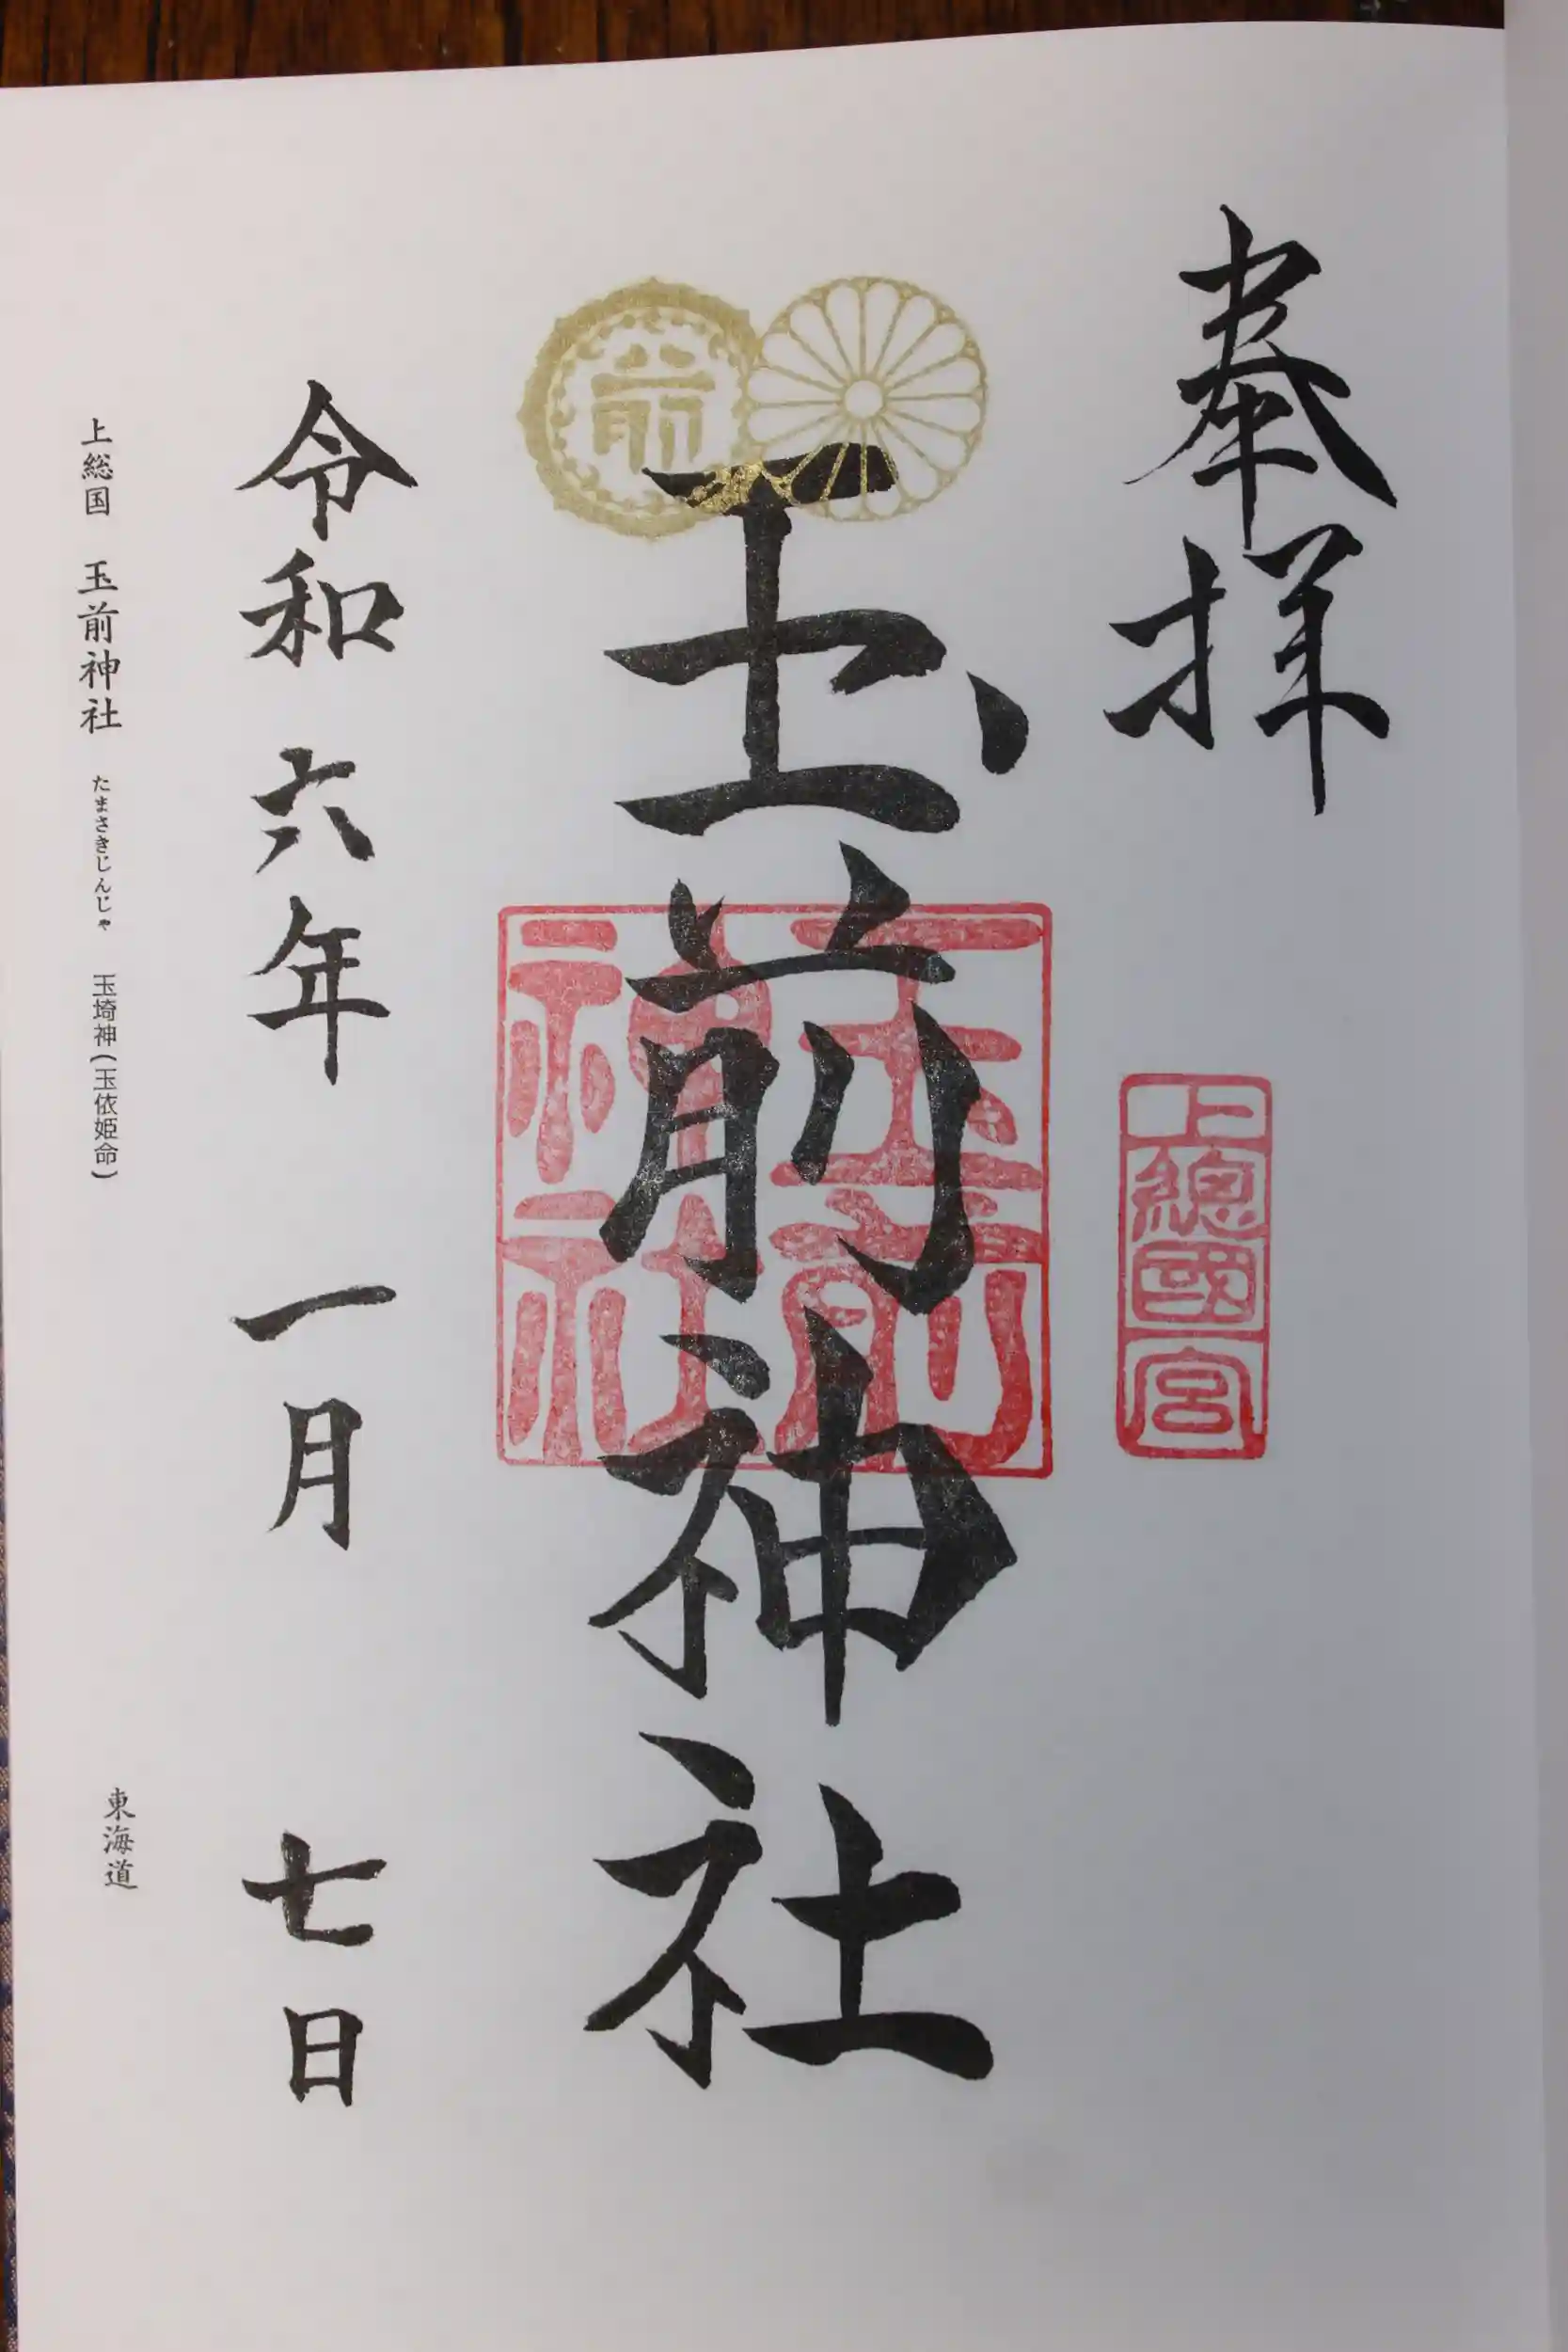 奉拝
上總國一宮
玉前神社
玉前神社
令和六年一月七日
上総国 玉前神社 たまさきじんじゃ 玉埼神(玉依姫命)
東海道